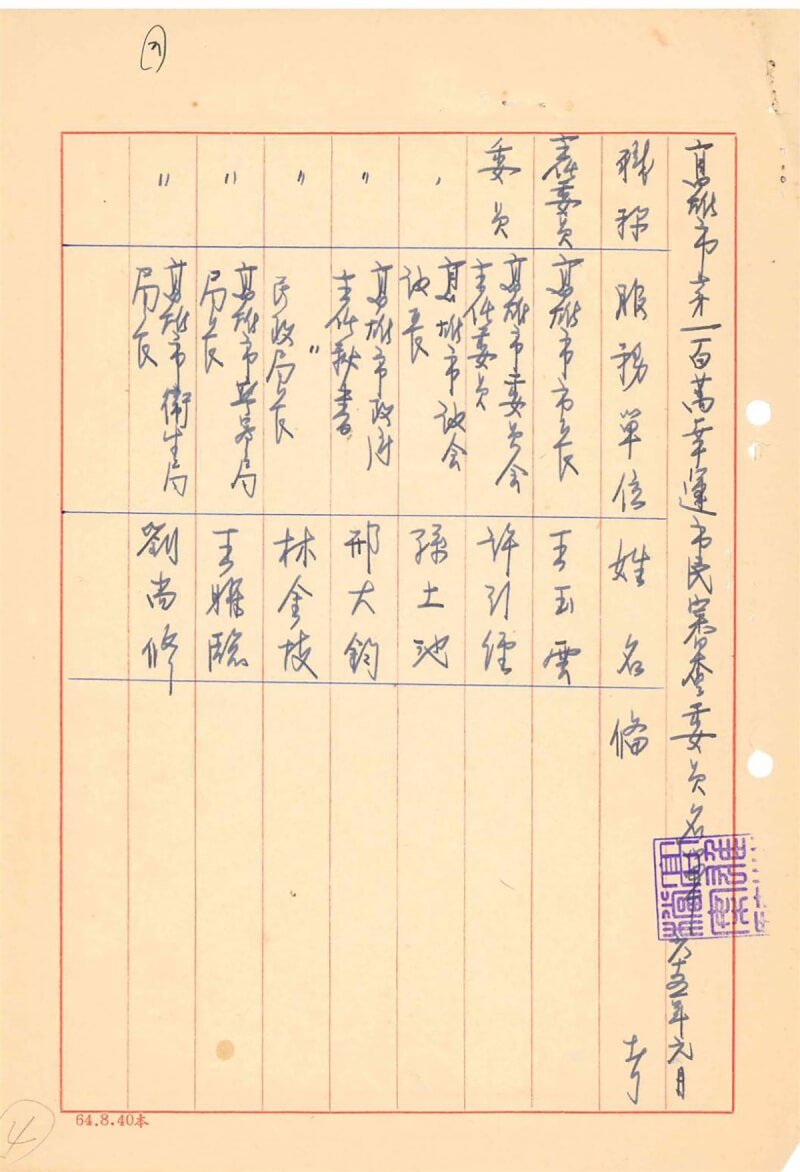 高雄市第一百萬幸運市民審查委員名單 六十五年元月
職稱 服務單位 姓名 備考
主任委員 高雄市市長 王玉雲
委員 高雄市委員會
主任委員 許引經
〃 高雄市議会
議長 孫土池
〃 高雄市政府
主任秘書 邢大鈞
〃 〃
民政局長 林金枝
〃 高雄市警察局
局長 王雅臨
〃 高雄市衛生局
局長 劉尚修
64.8.40本
4